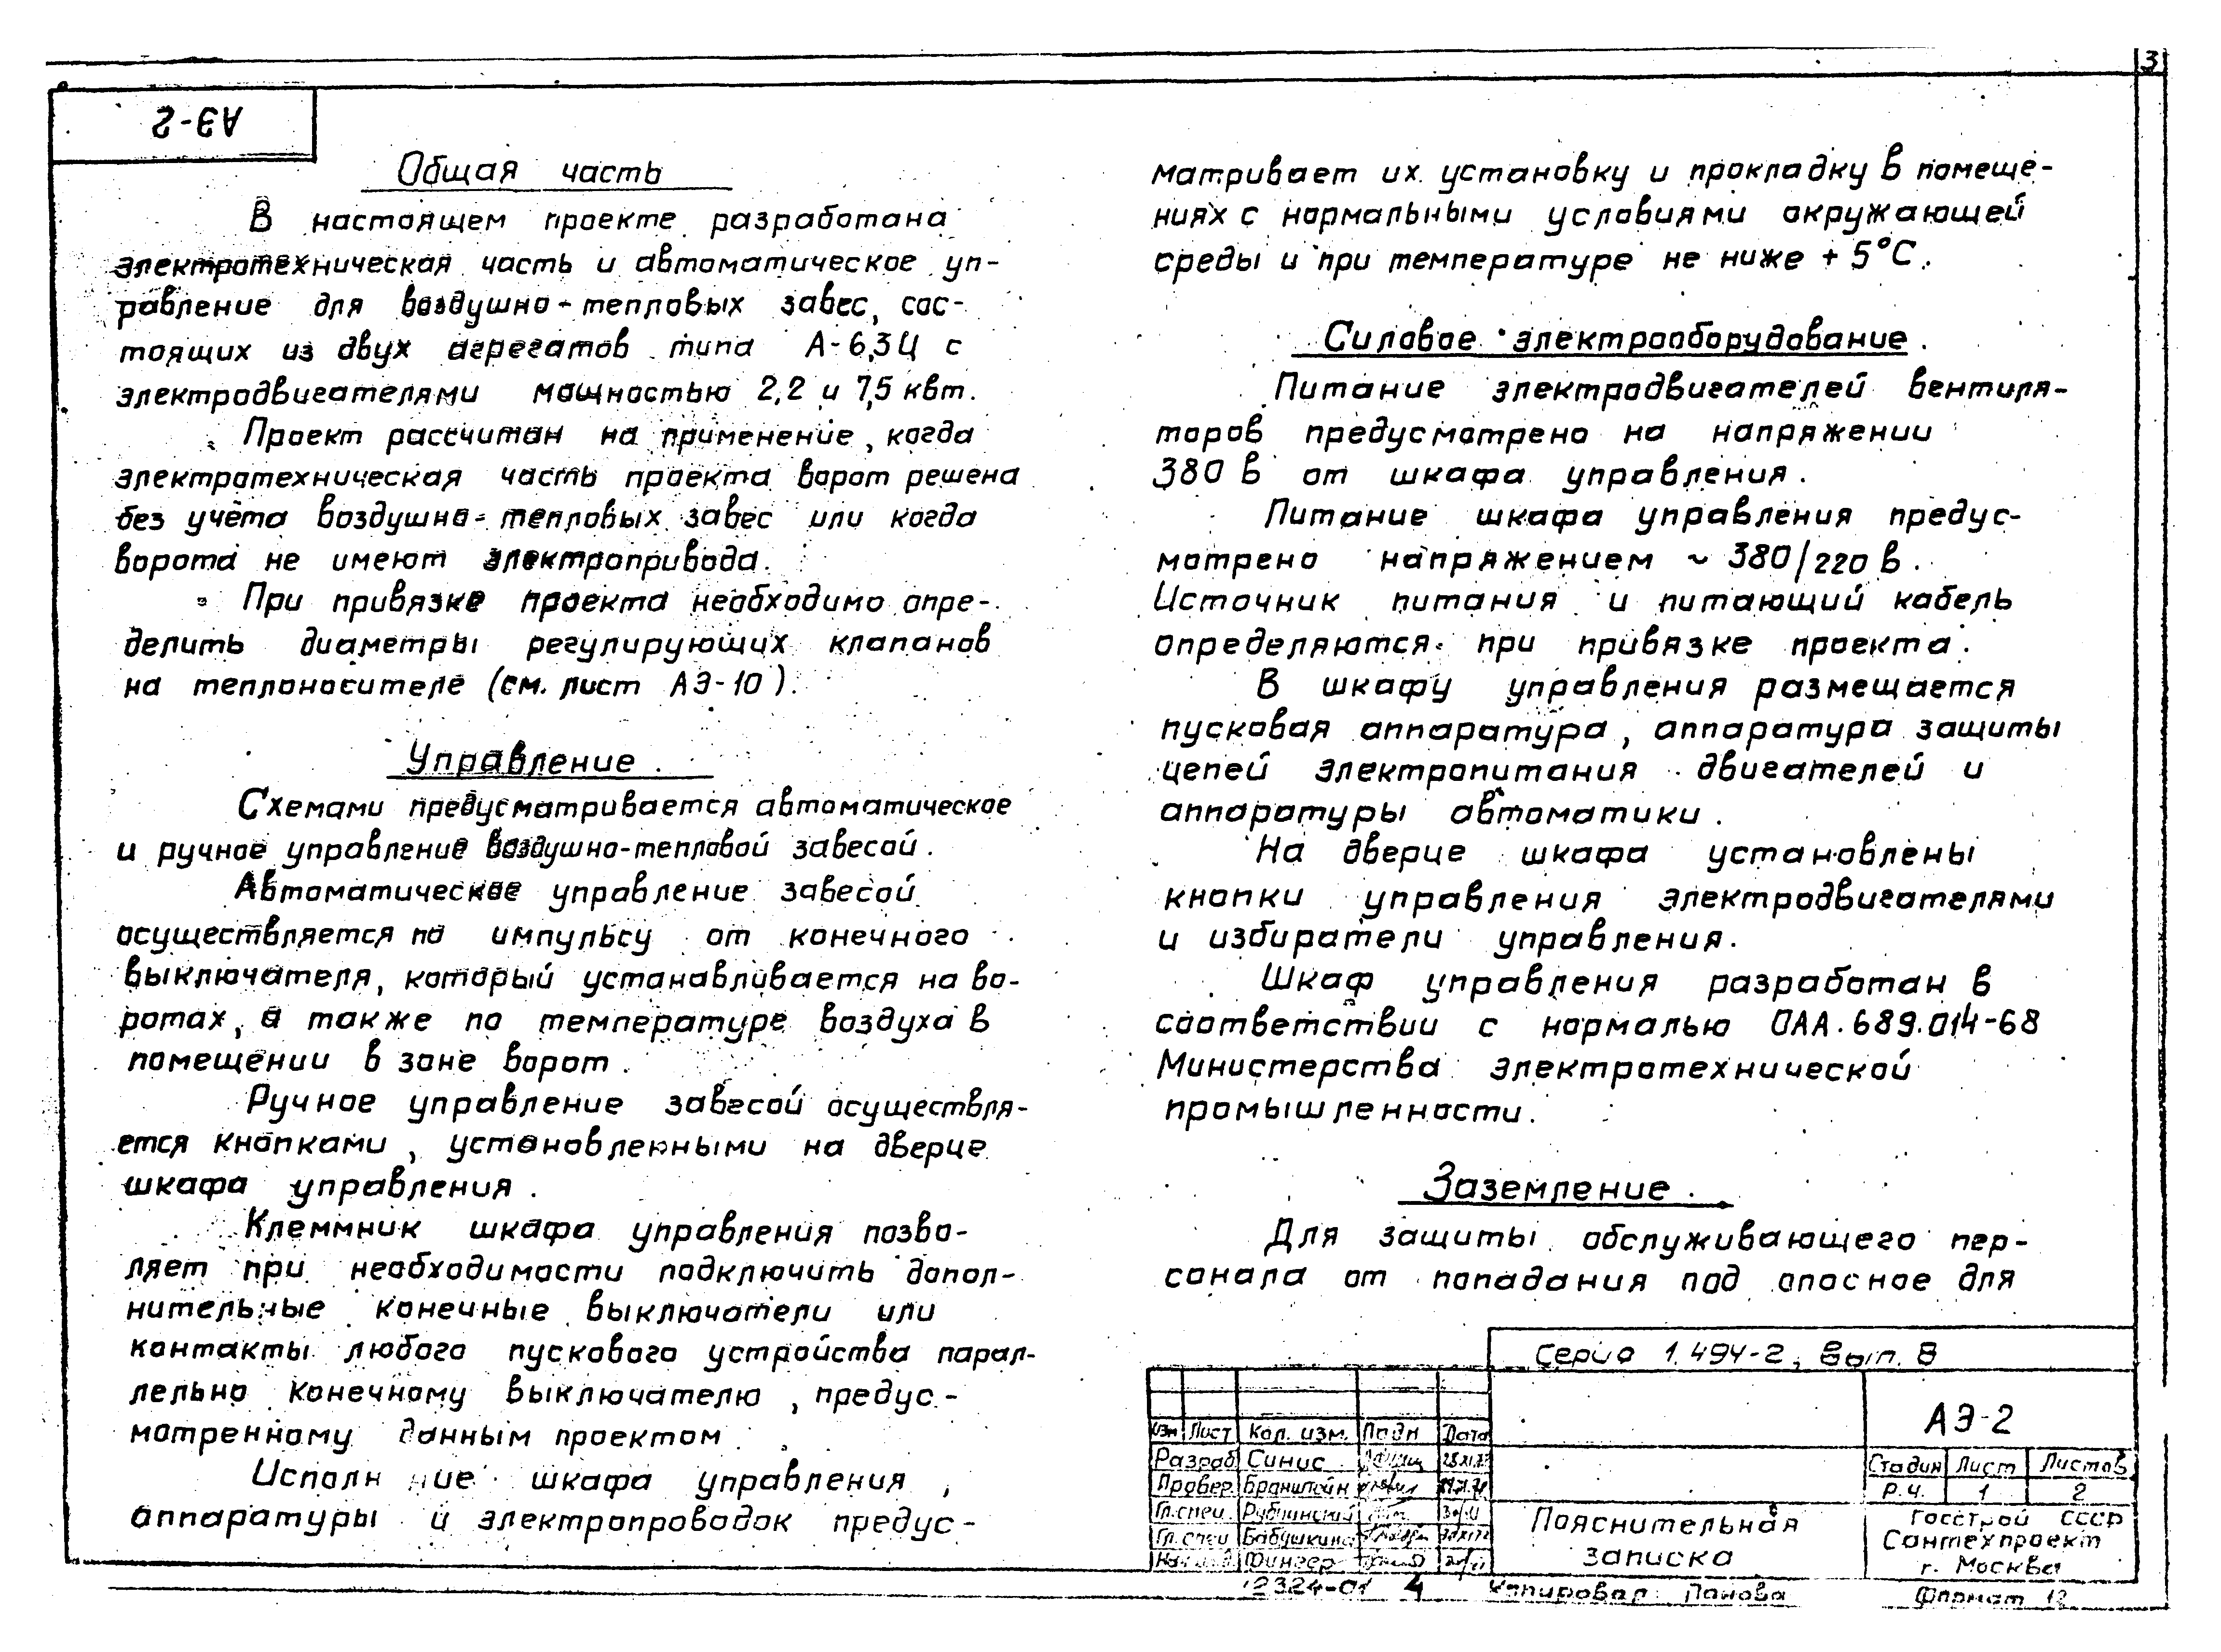 3
АЭ-2
Общая часть
В настоящем проекте разработана
электротехническая часть и автоматическое уп-
равление для воздушно-тепловых завес, сос-
тоящих из двух агрегатов типа А-6,3Ц с
электродвигателями мощностью 2,2 и 7,5 квт.
Проект рассчитан на применение, когда
электротехническая часть проекта ворот решена
без учёта воздушно-тепловых завес или когда
ворота не имеют электропривода.
При привязке проекта необходимо опре-
делить диаметры регулирующих клапанов
на теплоносителе (см. лист АЭ-10).
Управление.
Схемами предусматривается автоматическое
и ручное управление воздушно-тепловой завесой.
Автоматическое управление завесой
осуществляется по импульсу от конечного
выключателя, который устанавливается на во-
ротах, а также по температуре воздуха в
помещении в зоне ворот.
Ручное управление завесой осуществля-
ется кнопками, установленными на дверце
шкафа управления.
Клеммник шкафа управления позво-
ляет при необходимости подключить допол-
нительные конечные выключатели или
контакты любого пускового устройства парал-
лельно конечному выключателю, предус-
мотренному данным проектом.
Исполнение шкафа управления,
аппаратуры и электропроводок предус-
матривает их установку и прокладку в помеще-
ниях с нормальными условиями окружающей
среды и при температуре не ниже +5°С.
Силовое электрооборудование.
Питание электродвигателей вентиля-
торов предусмотрено на напряжении
380 в от шкафа управления.
Питание шкафа управления предус-
мотрено напряжением ~ 380/220 в.
Источник питания и питающий кабель
определяются при привязке проекта.
В шкафу управления размещается
пусковая аппаратура, аппаратура защиты
цепей электропитания двигателей и
аппаратуры автоматики.
На дверце шкафа установлены
кнопки управления электродвигателями
и избиратели управления.
Шкаф управления разработан в
соответствии с нормалью ОАА.689.014-68
Министерства электротехнической
промышленности.
Заземление.
Для защиты обслуживающего пер-
сонала от попадания под опасное для
Серия 1.494-2, Вып. 8
АЭ-2
Изм Лист Кол. изм. Подп Дата
Разраб Синис
Провер. Бранштейн
Гл.спец. Рубчинский
Гл.спец Бабушкина
Фингер
Стадия Лист Листов
Р.Ч. 1 2
Пояснительная
записка
Госстрой СССР
Сантехпроект
г. Москва
12324-01 4 Копировал: Панова Формат 12